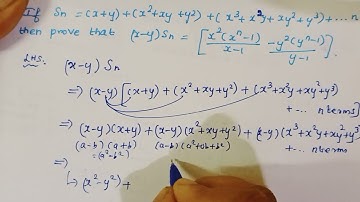 If Sn = (x+y) + (x²+xy+y²) + (x³+x²y+xy²+y³)+....n
then prove that (x-y)Sn = [x²(xⁿ-1)/x-1 - y²(yⁿ-1)/y-1].
LHS:
(x-y) Sn
⇒ (x-y) [(x+y) + (x²+xy+y²) + (x³+x²y+xy²+y³)
+--- n terms]
⇒ (x-y)(x+y) + (x-y)(x²+xy+y²) + (x-y)(x³+x²y+xy²+y³)
(a-b) (a+b) (a-b) (a²+ab+b²) +--- n terms
= (a²-b²)
⇒
↳ (x²-y²) +